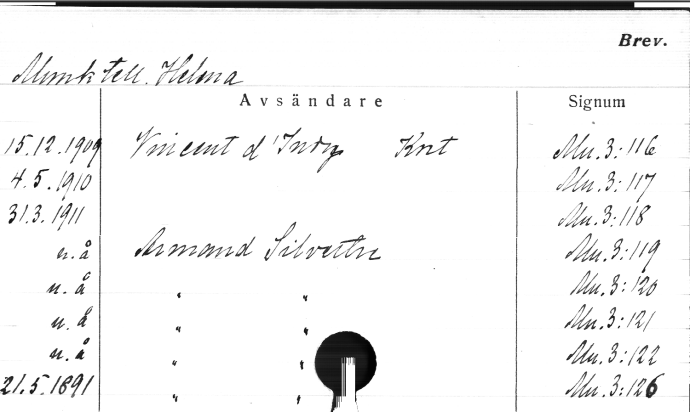 Brev.
Munktell. Helena
Avsändare Signum
15.12.1909 Vincent d'Indy Kort Mu.3:116
4.5.1910 Mu.3:117
31.3.1911 Mu.3:118
u.å Armand Silvestre Mu.3:119
u.å " " Mu.3:120
u.å " " Mu.3:121
u.å " " Mu.3:122
21.5.1891 " " Mu.3:126